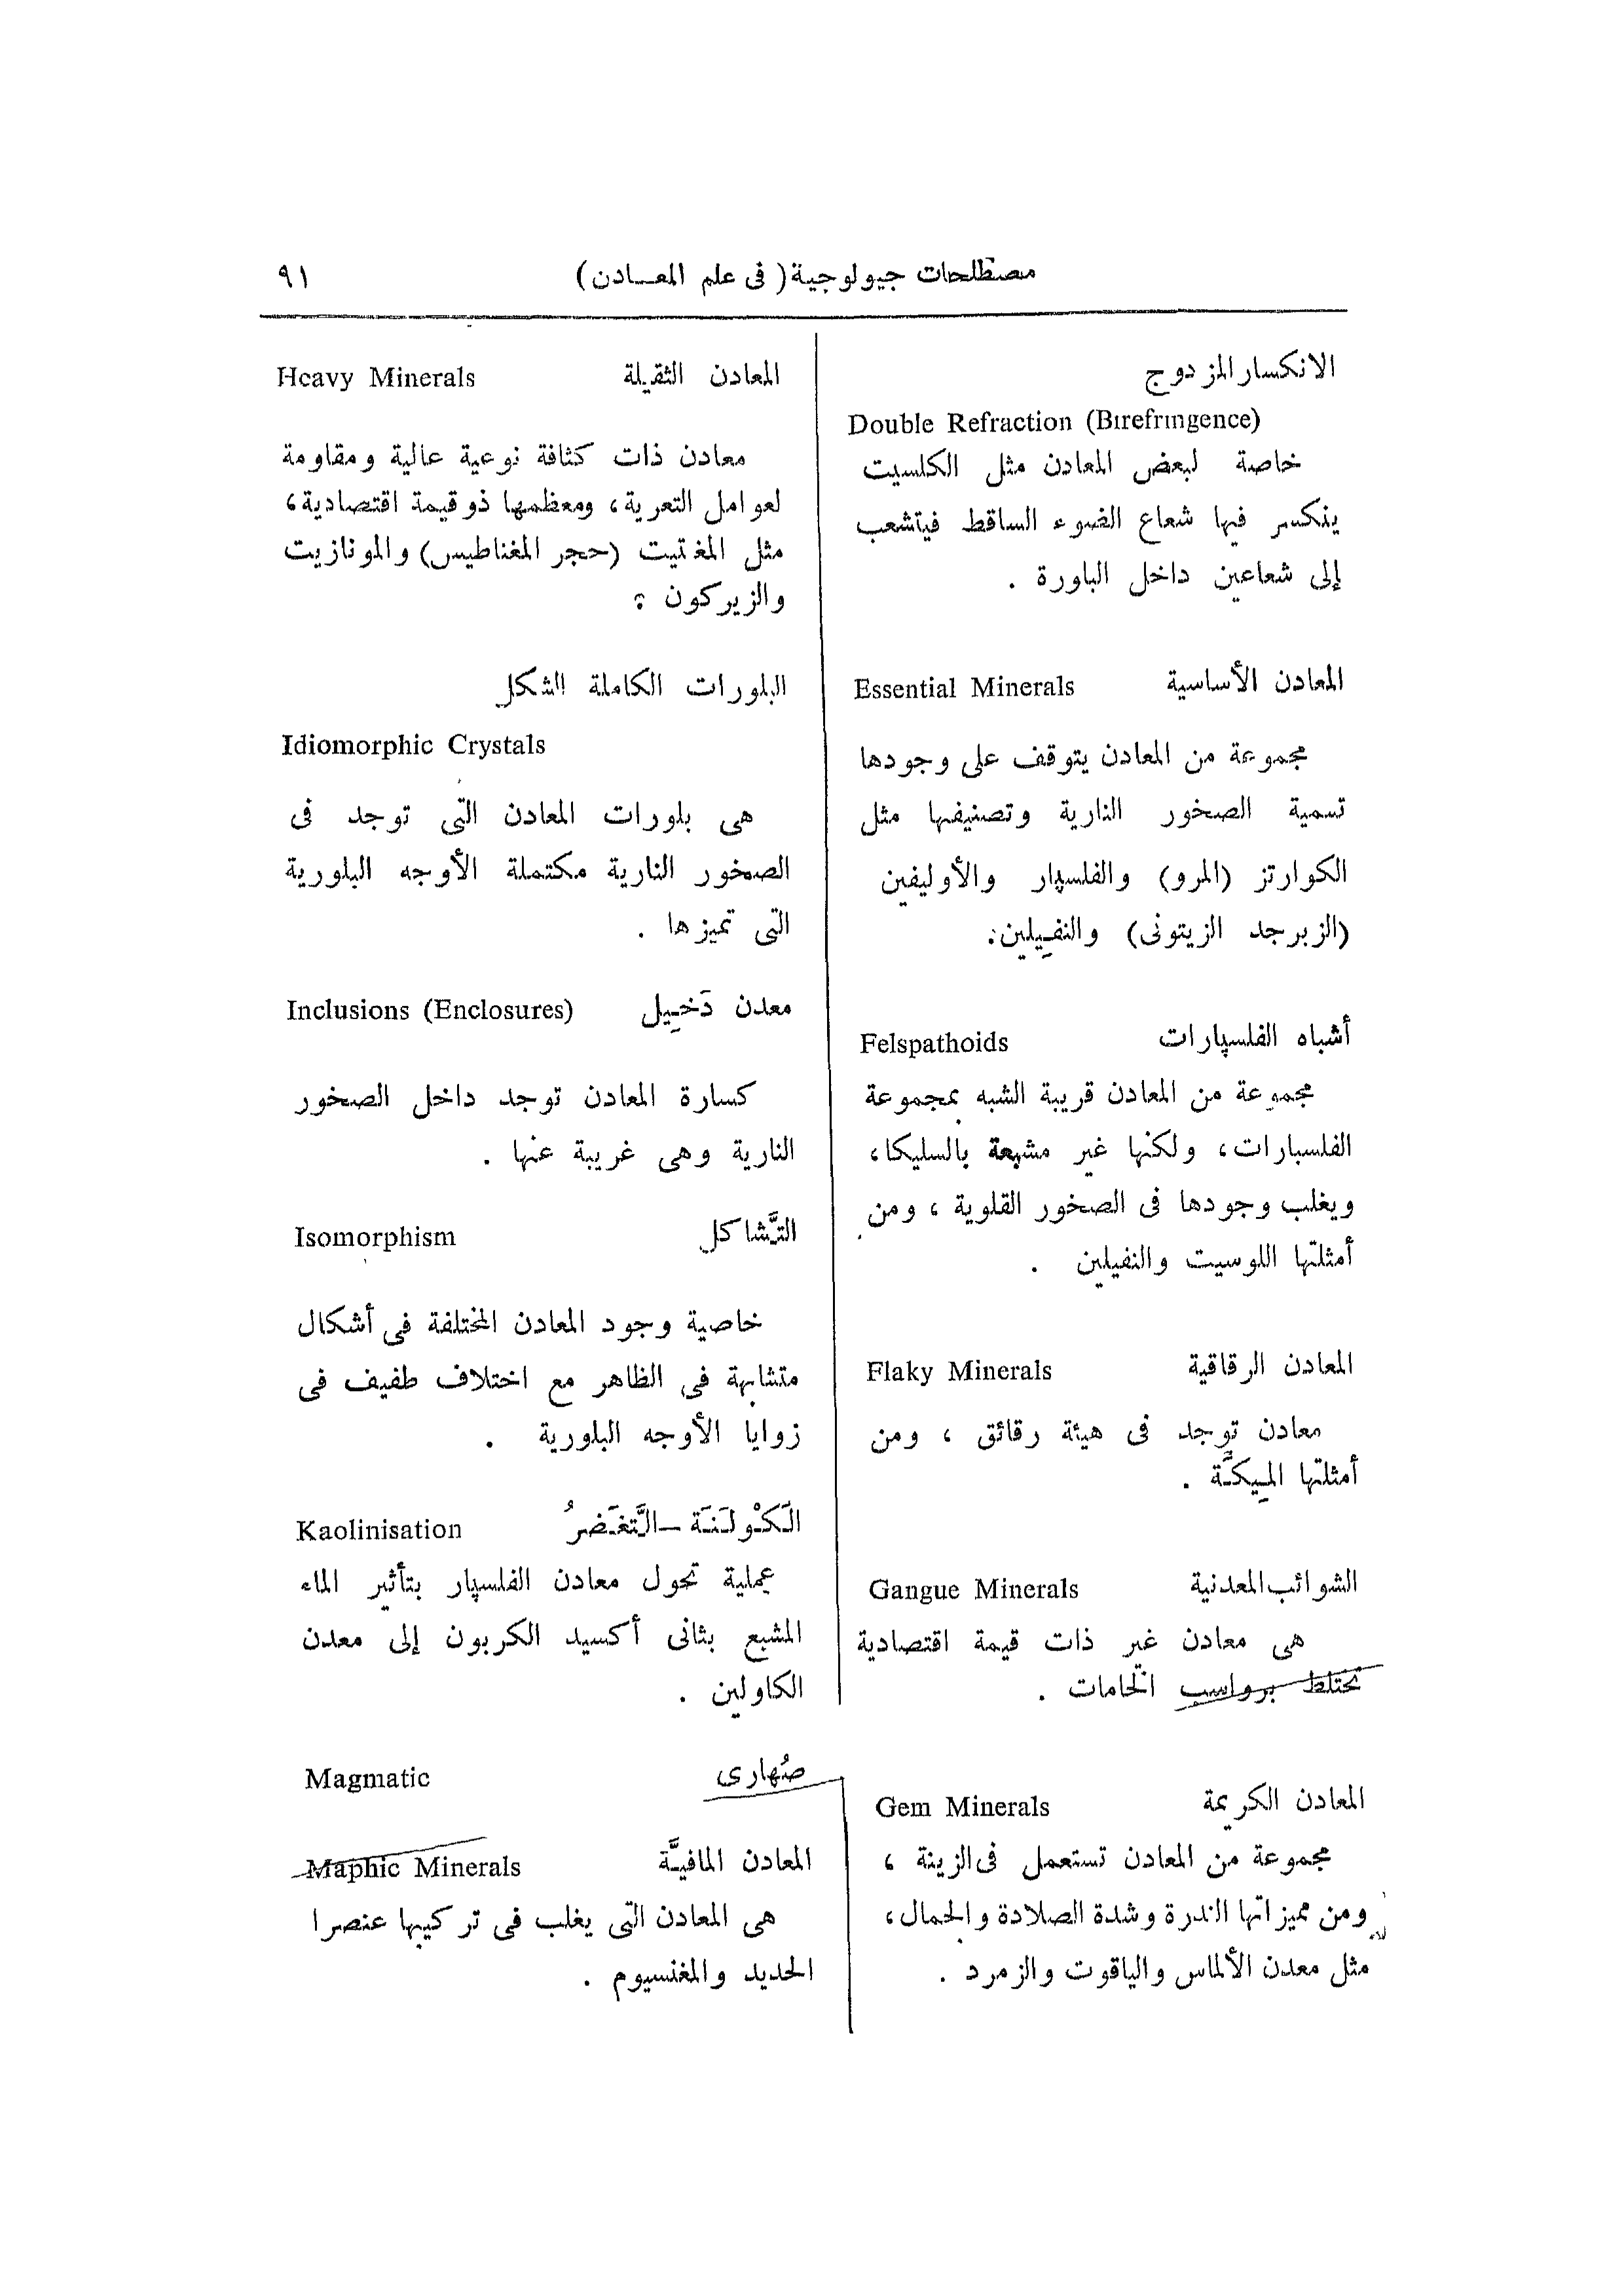 مصطلحات جيولوجية (فى علم المعادن) ٩١
الانكسار المزدوج
Double Refraction (Birefringence)
خاصة لبعض المعادن مثل الكلسيت
ينكسر فيها شعاع الضوء الساقط فيتشعب
إلى شعاعين داخل البلورة .
المعادن الأساسية Essential Minerals
مجموعة من المعادن يتوقف على وجودها
تسمية الصخور النارية وتصنيفها مثل
الكوارتز (المرو) والفلسپار والأوليفين
(الزبرجد الزيتونى) والنفيلين .
أشباه الفلسپارات Felspathoids
مجموعة من المعادن قريبة الشبه بمجموعة
الفلسبارات ، ولكنها غير مشبعة بالسليكا ،
ويغلب وجودها فى الصخور القلوية ، ومن
أمثلتها اللوسيت والنفيلين .
المعادن الرقاقية Flaky Minerals
معادن توجد فى هيئة رقائق ، ومن
أمثلتها المِيكَّة .
الشوائب المعدنية Gangue Minerals
هى معادن غير ذات قيمة اقتصادية
تختلط برواسب الخامات .
المعادن الكريمة Gem Minerals
مجموعة من المعادن تستعمل فى الزينة ،
ومن مميزاتها الندرة وشدة الصلادة والجمال ،
مثل معدن الألماس والياقوت والزمرد .
المعادن الثقيلة Heavy Minerals
معادن ذات كثافة نوعية عالية ومقاومة
لعوامل التعرية ، ومعظمها ذو قيمة اقتصادية ،
مثل المغتيت (حجر المغناطيس) والمونازيت
والزيركون .
البلورات الكاملة الشكل
Idiomorphic Crystals
هى بلورات المعادن التى توجد فى
الصخور النارية مكتملة الأوجه البلورية
التى تميزها .
معدن دَخِيل Inclusions (Enclosures)
كسارة المعادن توجد داخل الصخور
النارية وهى غريبة عنها .
التَّشاكل Isomorphism
خاصية وجود المعادن المختلفة فى أشكال
متشابهة فى الظاهر مع اختلاف طفيف فى
زوايا الأوجه البلورية .
الكَوْلَنَة – التَّغَضرُ Kaolinisation
عملية تحول معادن الفلسپار بتأثير الماء
المشبع بثانى أكسيد الكربون إلى معدن
الكاولين .
صُهارى Magmatic
المعادن المافيَّة Maphic Minerals
هى المعادن التى يغلب فى تركيبها عنصرا
الحديد والمغنسيوم .